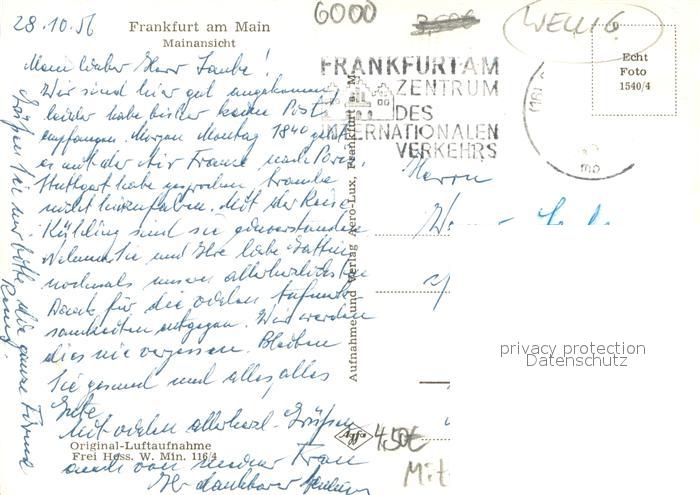 28.10.56
Frankfurt am Main
Mainansicht
6000
WELLIG
Echt
Foto
1540/4
FRANKFURT AM
ZENTRUM
DES
INTERNATIONALEN
VERKEHRS
Mein lieber Herr Laube!
Wir sind hier gut angekommen
leider habe bisher keine Post
empfangen. Morgen Montag 1840 geht
es mit der Air France nach Paris.
Stuttgart habe gesprochen, brauche
nicht hinzufahren. Mit der Reise
Kühling sind sie einverstanden
Nehmen Sie und Ihre liebe Gattin
nochmals unseren allerherzlichsten
Dank für die vielen Aufmerk-
samkeiten entgegen. Wir werden
dies nie vergessen. Bleiben
Sie gesund und alles, alles
Gute
Mit vielen allerherzl. Grüßen
auch von meiner Frau
Ihr dankbarer
Grüßen Sie mir bitte die ganze Firma
Original-Luftaufnahme
Frei Hess. W. Min. 116/4
Aufnahme und Verlag Aero-Lux, Frankfurt a. M.
Herrn
Agfa
4,50€
Mit
privacy protection
Datenschutz